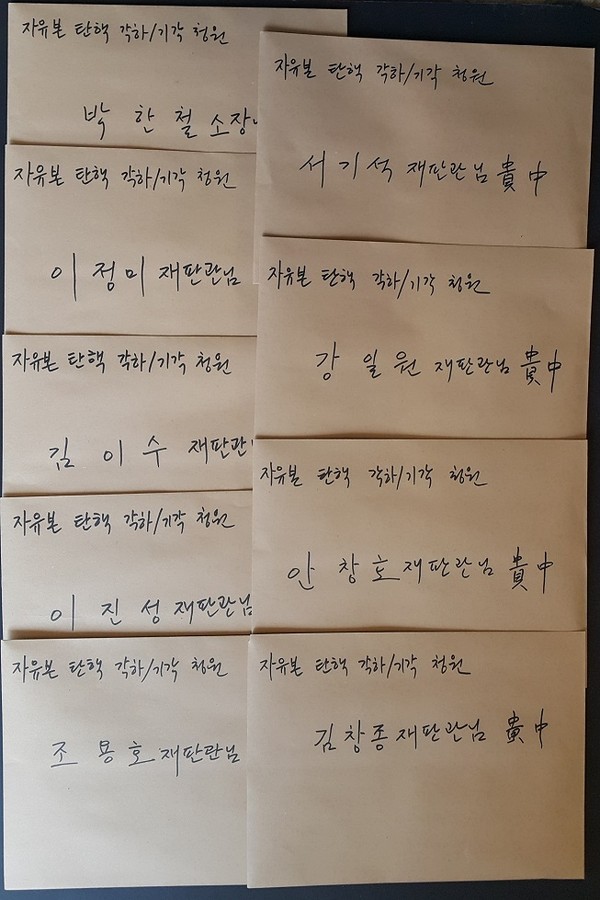 자유본 탄핵 각하/기각 청원
박 한 철 소장
자유본 탄핵 각하/기각 청원
이 정 미 재판관님
자유본 탄핵 각하/기각 청원
김 이 수 재판관
자유본 탄핵 각하/기각 청원
이 진 성 재판관님
자유본 탄핵 각하/기각 청원
조 용 호 재판관님
자유본 탄핵 각하/기각 청원
서 기 석 재판관님 貴中
자유본 탄핵 각하/기각 청원
강 일 원 재판관님 貴中
자유본 탄핵 각하/기각 청원
안 창 호 재판관님 貴中
자유본 탄핵 각하/기각 청원
김 창 종 재판관님 貴中